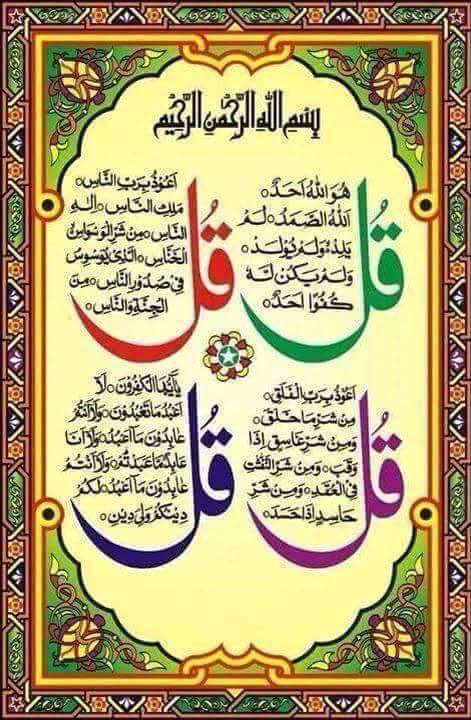 بِسْمِ اللّٰهِ الرَّحْمٰنِ الرَّحِيْمِ
قُلْ
هُوَ اللّٰهُ اَحَدٌ ۝
اَللّٰهُ الصَّمَدُ ۝ لَمْ
يَلِدْ ۝ وَلَمْ يُوْلَدْ ۝
وَلَمْ يَكُنْ لَّهٗ
كُفُوًا اَحَدٌ ۝
قُلْ
اَعُوْذُ بِرَبِّ النَّاسِ ۝
مَلِكِ النَّاسِ ۝ اِلٰهِ
النَّاسِ ۝ مِنْ شَرِّ الْوَسْوَاسِ
الْخَنَّاسِ ۝ الَّذِيْ يُوَسْوِسُ
فِيْ صُدُوْرِ النَّاسِ ۝ مِنَ
الْجِنَّةِ وَالنَّاسِ ۝
قُلْ
اَعُوْذُ بِرَبِّ الْفَلَقِ ۝
مِنْ شَرِّ مَا خَلَقَ ۝
وَمِنْ شَرِّ غَاسِقٍ اِذَا
وَقَبَ ۝ وَمِنْ شَرِّ النَّفّٰثٰتِ
فِي الْعُقَدِ ۝ وَمِنْ شَرِّ
حَاسِدٍ اِذَا حَسَدَ ۝
قُلْ
يٰٓاَيُّهَا الْكٰفِرُوْنَ ۝ لَآ
اَعْبُدُ مَا تَعْبُدُوْنَ ۝ وَلَآ اَنْتُمْ
عٰبِدُوْنَ مَآ اَعْبُدُ ۝ وَلَآ اَنَا
عَابِدٌ مَّا عَبَدْتُّمْ ۝ وَلَآ اَنْتُمْ
عٰبِدُوْنَ مَآ اَعْبُدُ ۝ لَكُمْ
دِيْنُكُمْ وَلِيَ دِيْنِ ۝